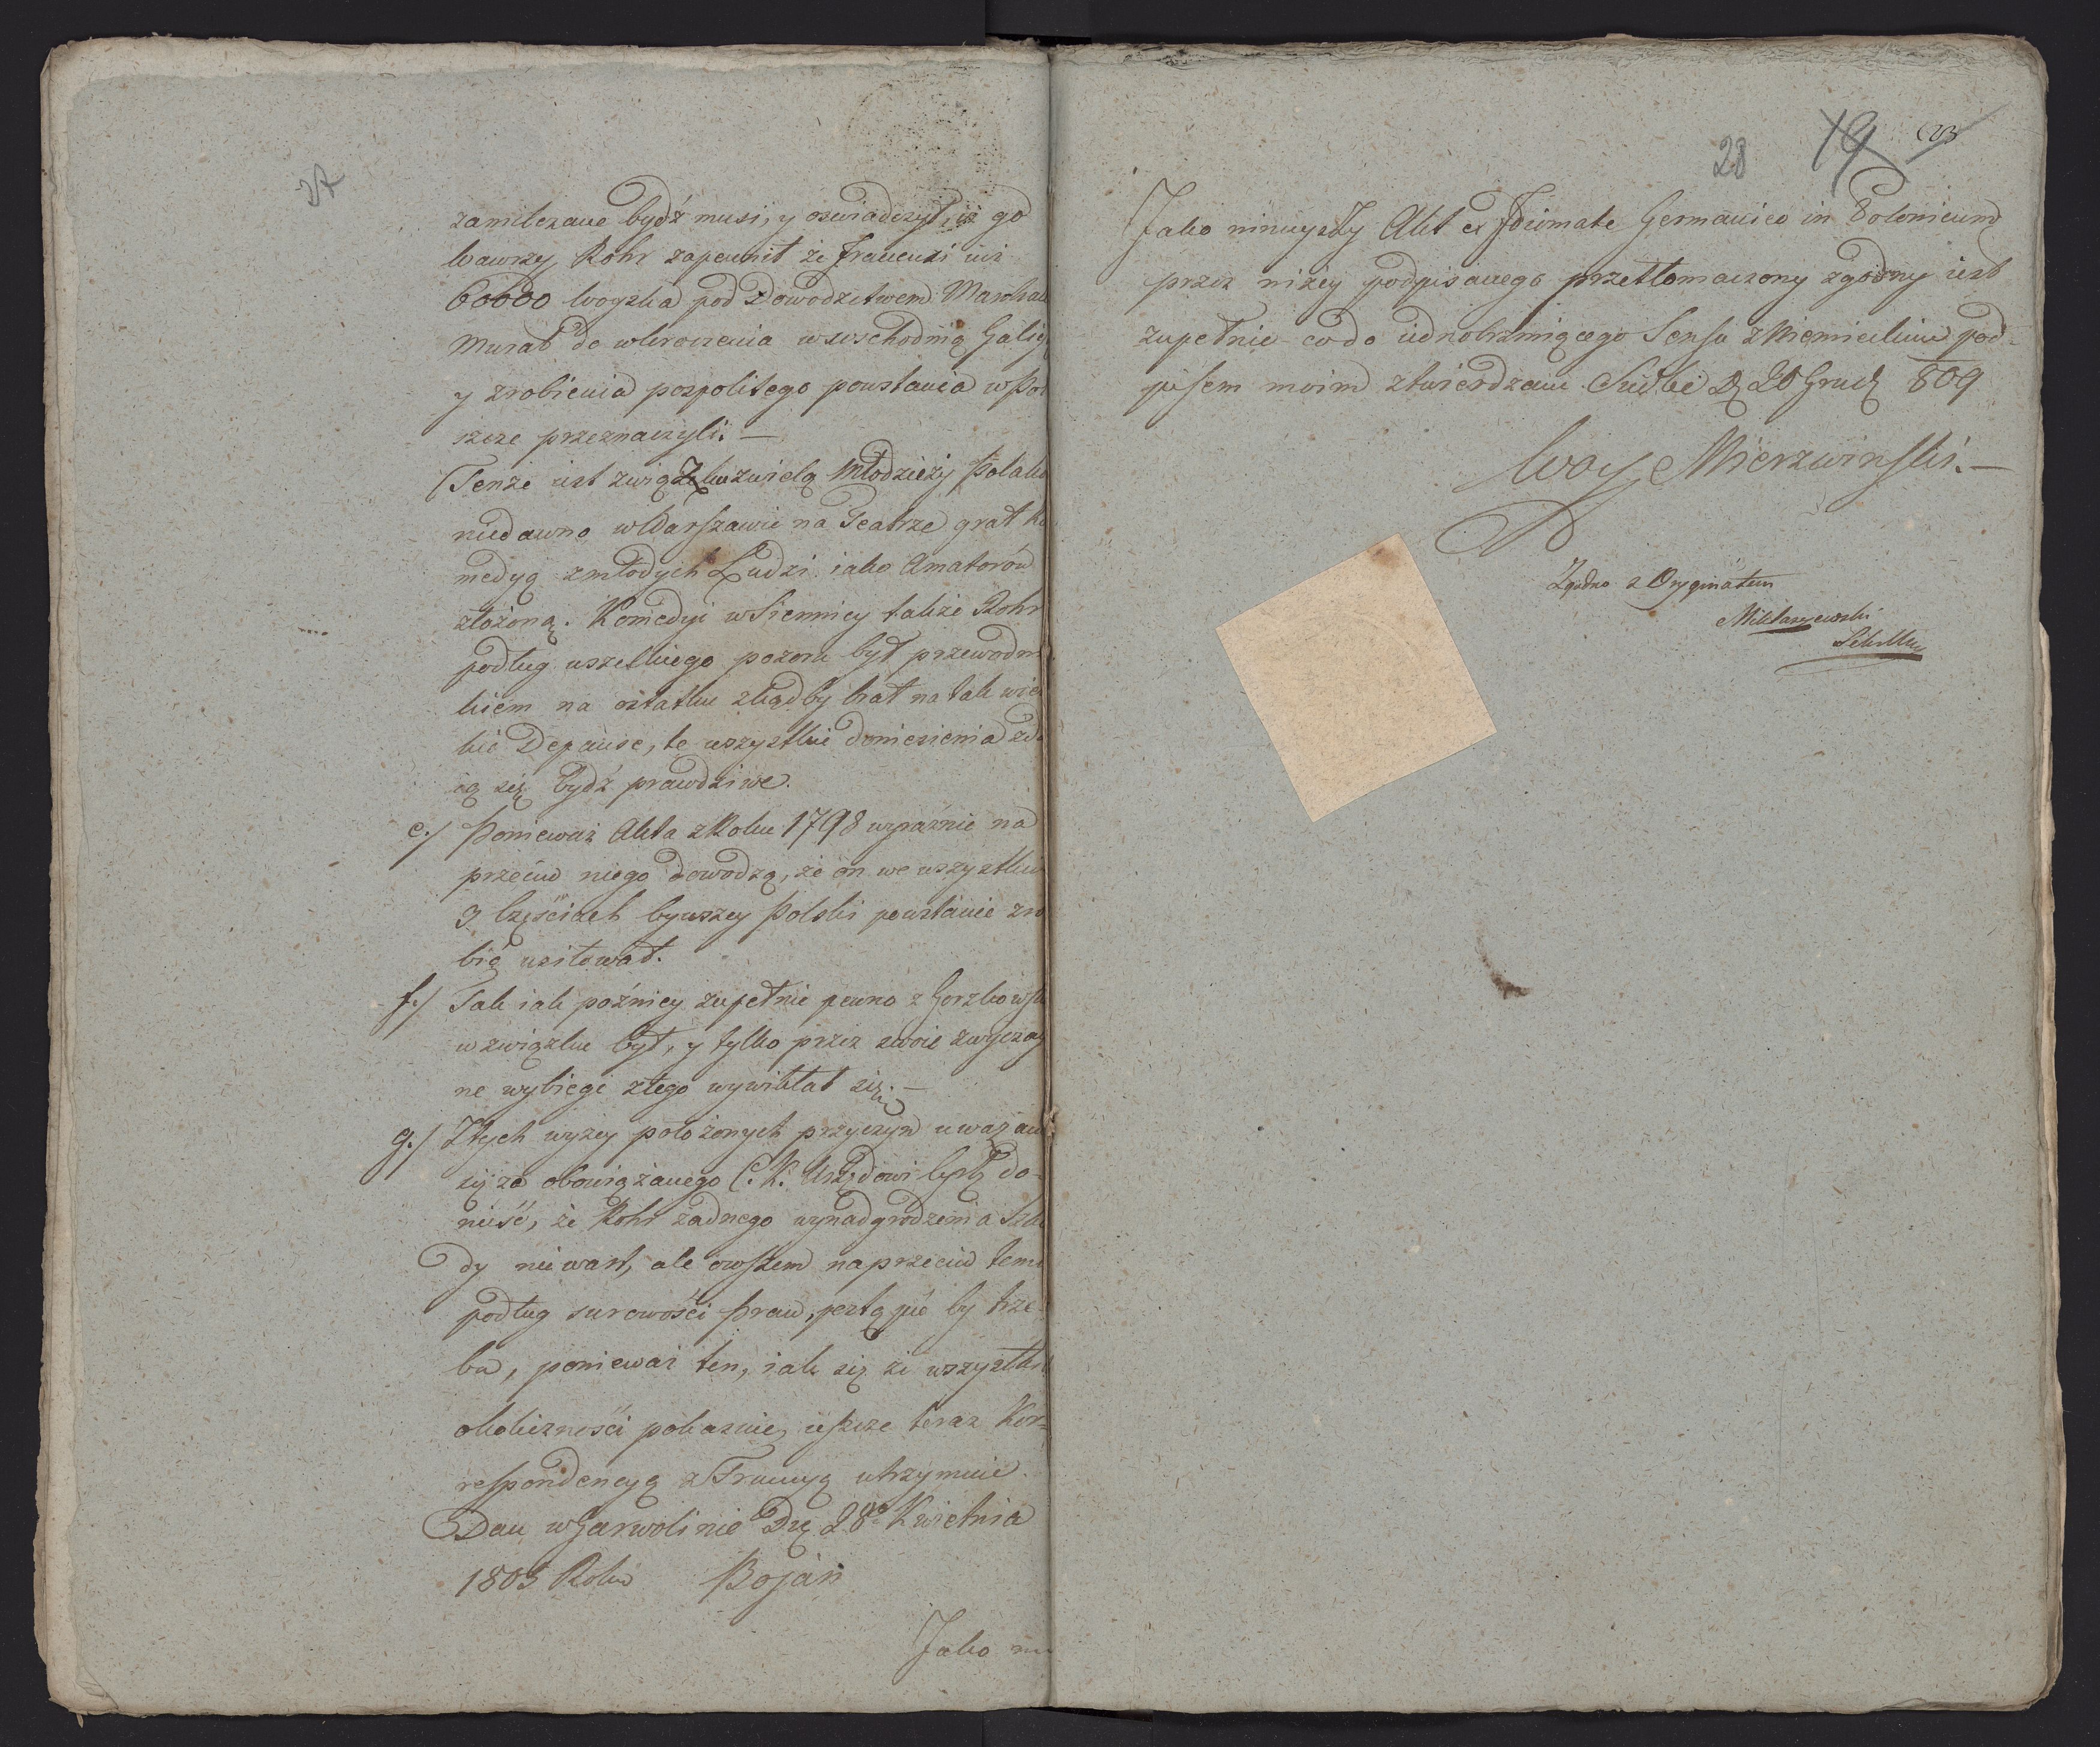 27
zamilczane bydź musi, y oswiadczył, iż go
Wawrzy Rohr zapewnił że francuzi iuż
60000 woyska pod Dowodztwem Marszał
Murat do wkroczenia w wschodnią Galicy
y zrobienia pospolitego powstania w Pol
szcze przeznaczyli. —
Tenże iest związku z wielą Młodzieży Polak
niedawno w Warszawie na Teatrze grał Ko
medyą z młodych Ludzi iako Amatorów
złożoną. Komedyi w Siennicy także Rohr
podług wszelkiego pozoru był przewodni
kiem na ostatku zkądby brał na tak wiel
kie Depanse, te wszystkie doniesienia zda
ią się bydź prawdziwe.
e./ Ponieważ Akta z Roku 1798 wyraźnie na
przeciw niego dowodzą, że on we wszystkich
3 Częściach bywszey Polski powstanie zro
bić usiłował.
f./ Tak iak poźniey zupełnie pewno z Gorzkowsk
w związku był, y tylko przez swoie zwyczay
ne wybiegi z tego wywikłał się. —
g./ Z tych wyżey położonych przyczyn uważam
się za obowiązanego C. K. Urzędowi do-
nieść, że Rohr żadnego wynadgrodzenia Szko
dy nie wart, ale owszem naprzeciw temu
podług surowości Praw, postąpić by trze-
ba, ponieważ ten, iak się ze wszystkich
okoliczności pokazuie, ieszcze teraz Kor-
respondencyą z Francyą utrzymuie.
Dan w Garwolinie Dn. 28o Kwietnia
1805 Roku Bojan
Jako ni
28 19
Jako ninieyszy Akt ex Idiomate Germanico in Polonicum
przez niżey podpisanego przetłomaczony zgodny iest
zupełnie co do iednobrzmiącego Sensu z Niemieckim pod-
pisem moim ztwierdzam Siedlce D. 20 Grud. 809
Woy Mierzwinski. —
Zgodno z Oryginałem
Mikłaszewski